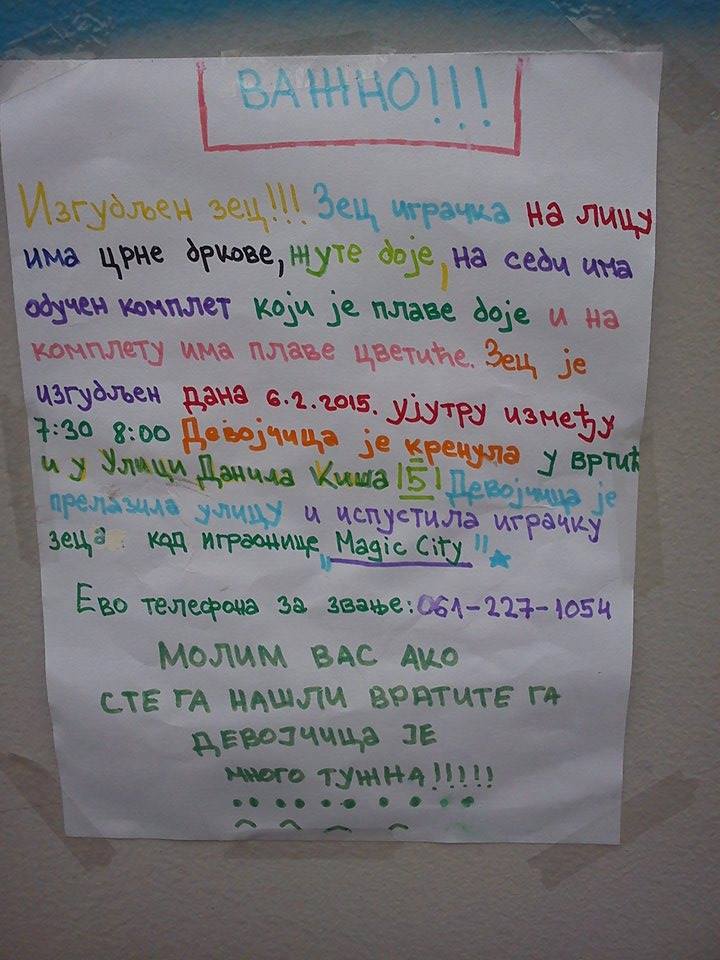 ВАЖНО!!!
Изгубљен зец!!! Зец играчка на лицу
има црне бркове, жуте боје, на себи има
обучен комплет који је плаве боје и на
комплету има плаве цветиће. Зец је
изгубљен дана 6.2.2015. ујутру између
7:30 8:00 Девојчица је кренула у вртић
и у Улици Данила Киша |5| Девојчица је
прелазила улицу и испустила играчку
зеца код играонице „Magic City"
Ево телефона за звање: 061-227-1054
МОЛИМ ВАС АКО
СТЕ ГА НАШЛИ ВРАТИТЕ ГА
ДЕВОЈЧИЦА ЈЕ
МНОГО ТУЖНА!!!!!